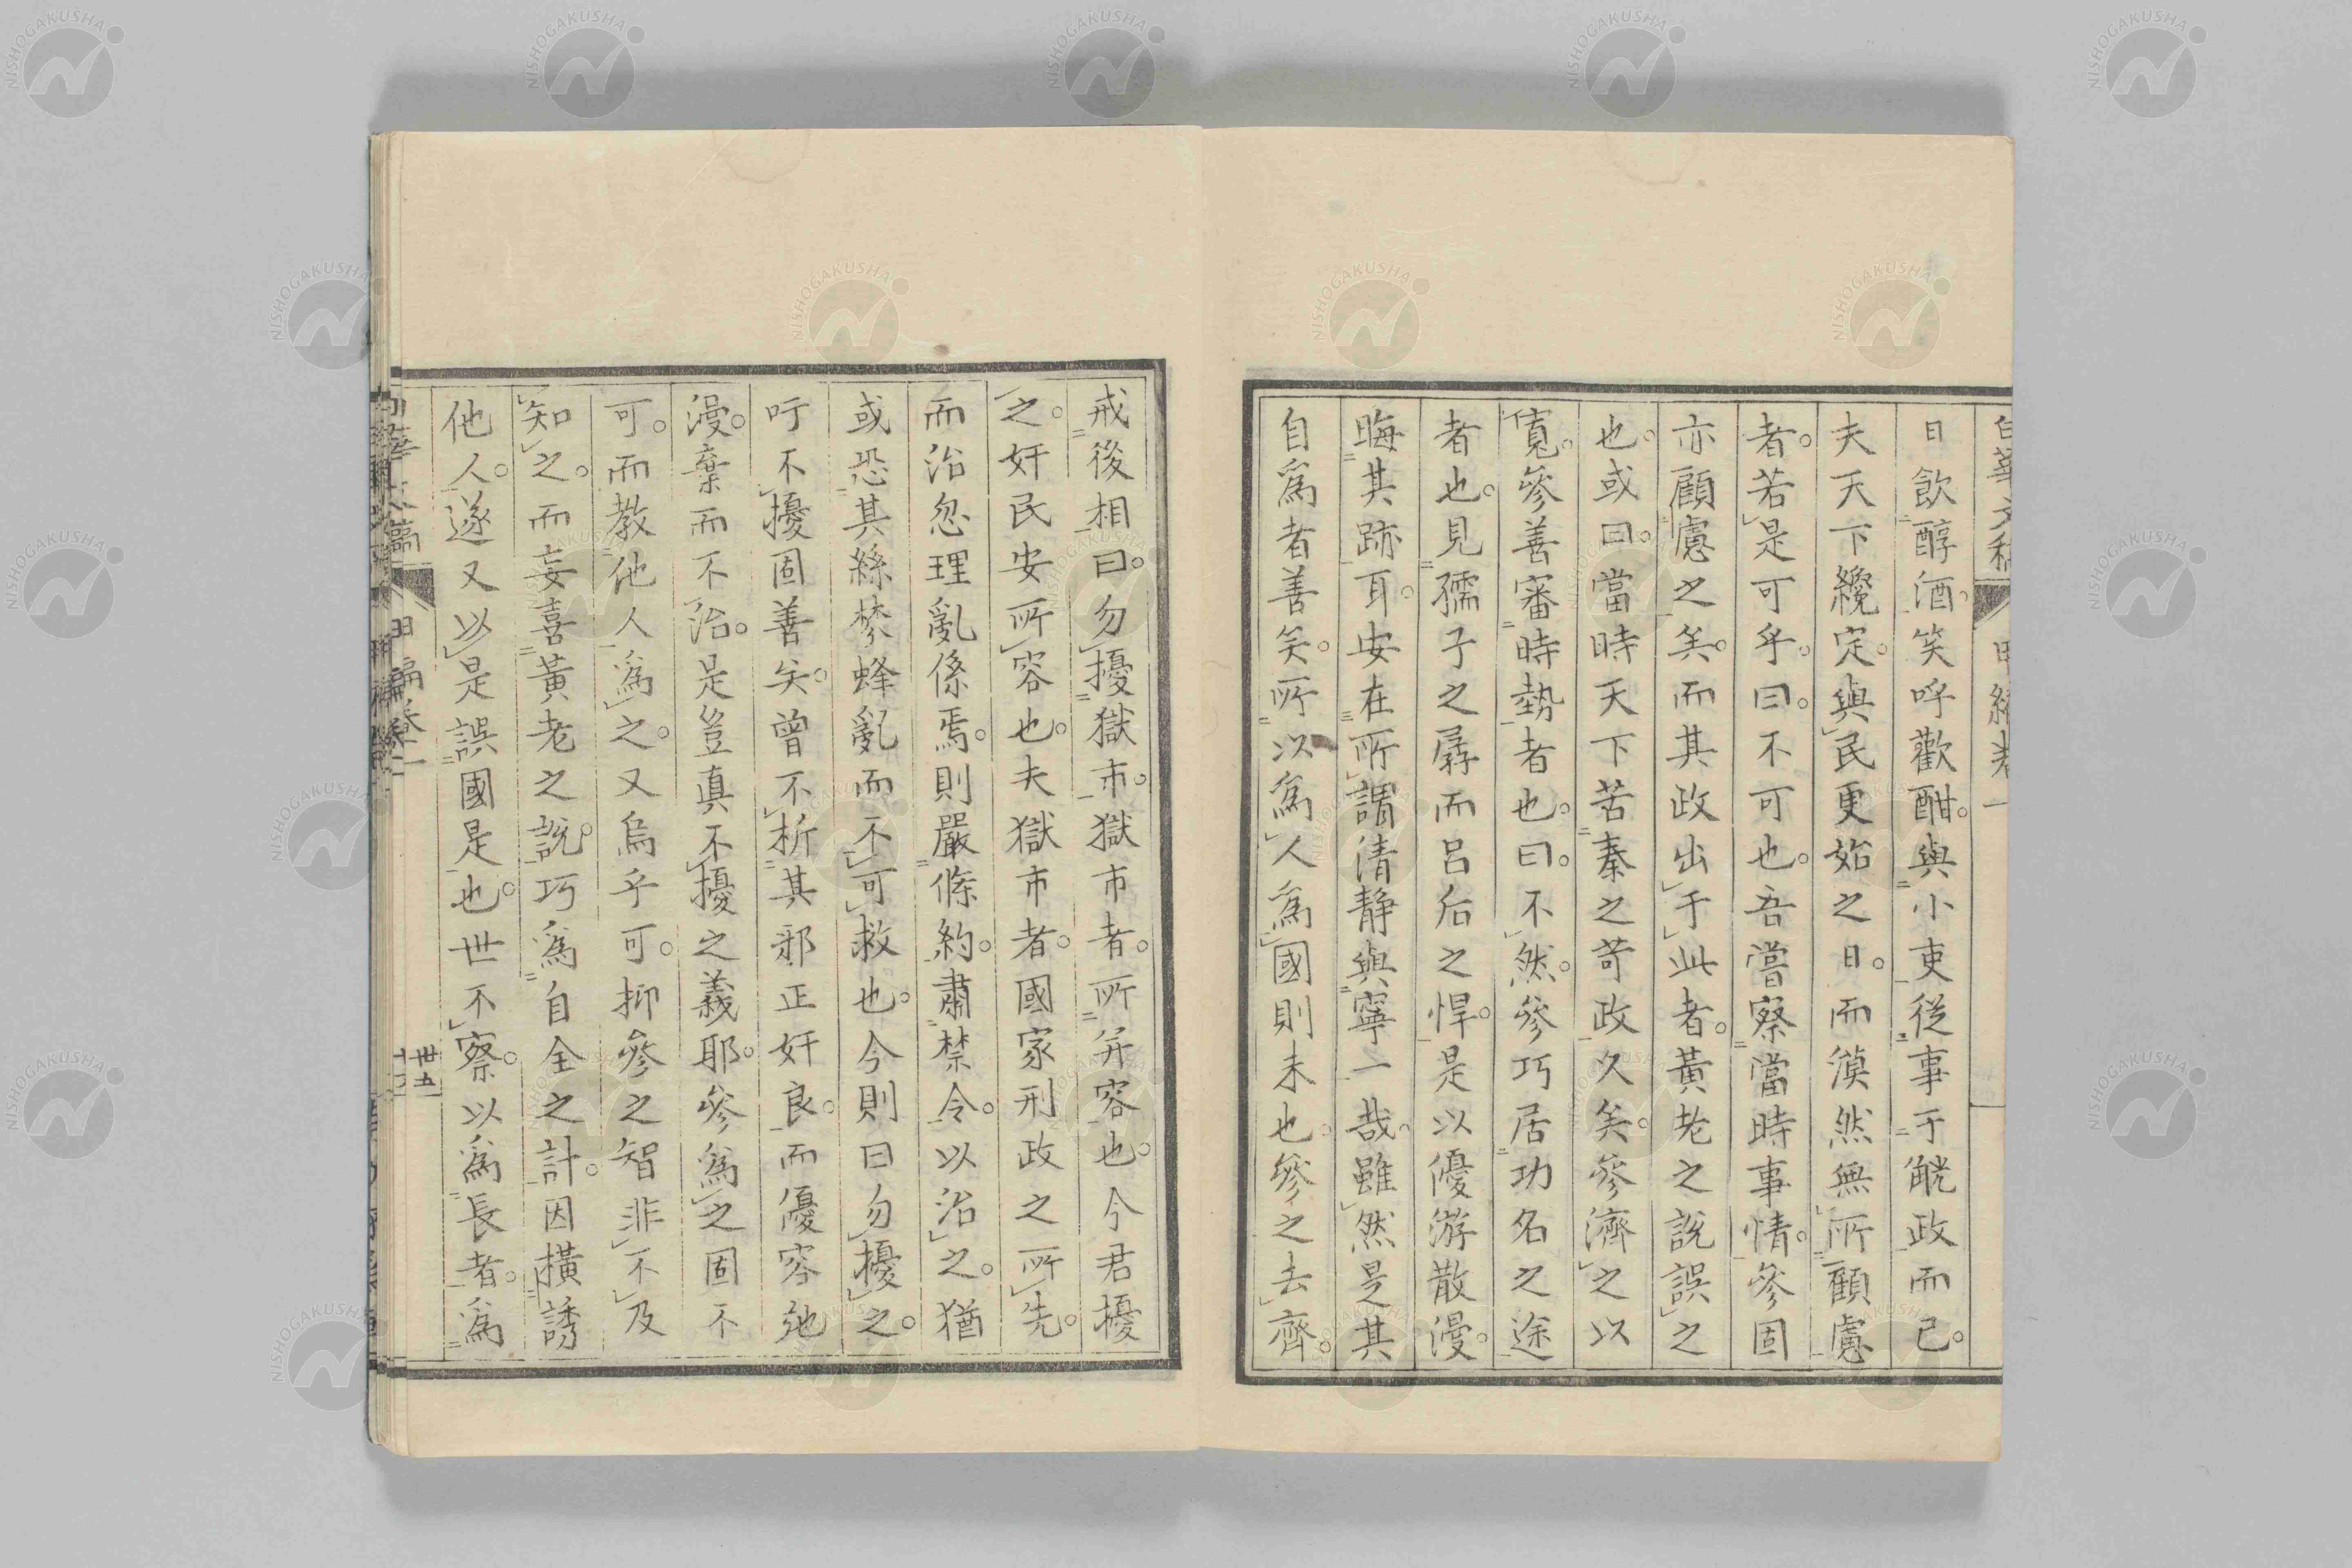 日飲醇酒。笑呼歡酣。與小吏從事于觥政而已。
夫天下纔定。與民更始之日。而漠然無所顧慮
者。若是可乎。曰。不可也。吾嘗察當時事情。參固
亦顧慮之矣。而其政出于此者。黃老之說誤之
也。或曰。當時天下苦秦之苛政久矣。參濟之以
寬。參善審時勢者也。曰。不然。參巧居功名之途
者也。見孺子之孱而呂后之悍。是以優游散漫。
晦其跡耳。安在所謂清静與寧一哉。雖然是其
自爲者善矣。所以爲人爲國則未也。參之去齊。
戒後相曰。勿擾獄市。獄市者。所并容也。今君擾
之。奸民安所容也。夫獄市者。國家刑政之所先。
而治忽理亂係焉。則嚴條約。肅禁令。以治之。猶
或恐其絲棼蜂亂而不可救也。今則曰勿擾之。
吁不擾固善矣。曾不折其邪正奸良。而優容弛
漫。棄而不治。是豈真不擾之義耶。參爲之固不
可。而教他人爲之。又烏乎可。抑參之智非不及
知之。而妄喜黃老之說。巧爲自全之計。因橫誘
他人。遂又以是誤國是也。世不察。以爲長者。爲
卅五
NISHOGAKUSHA